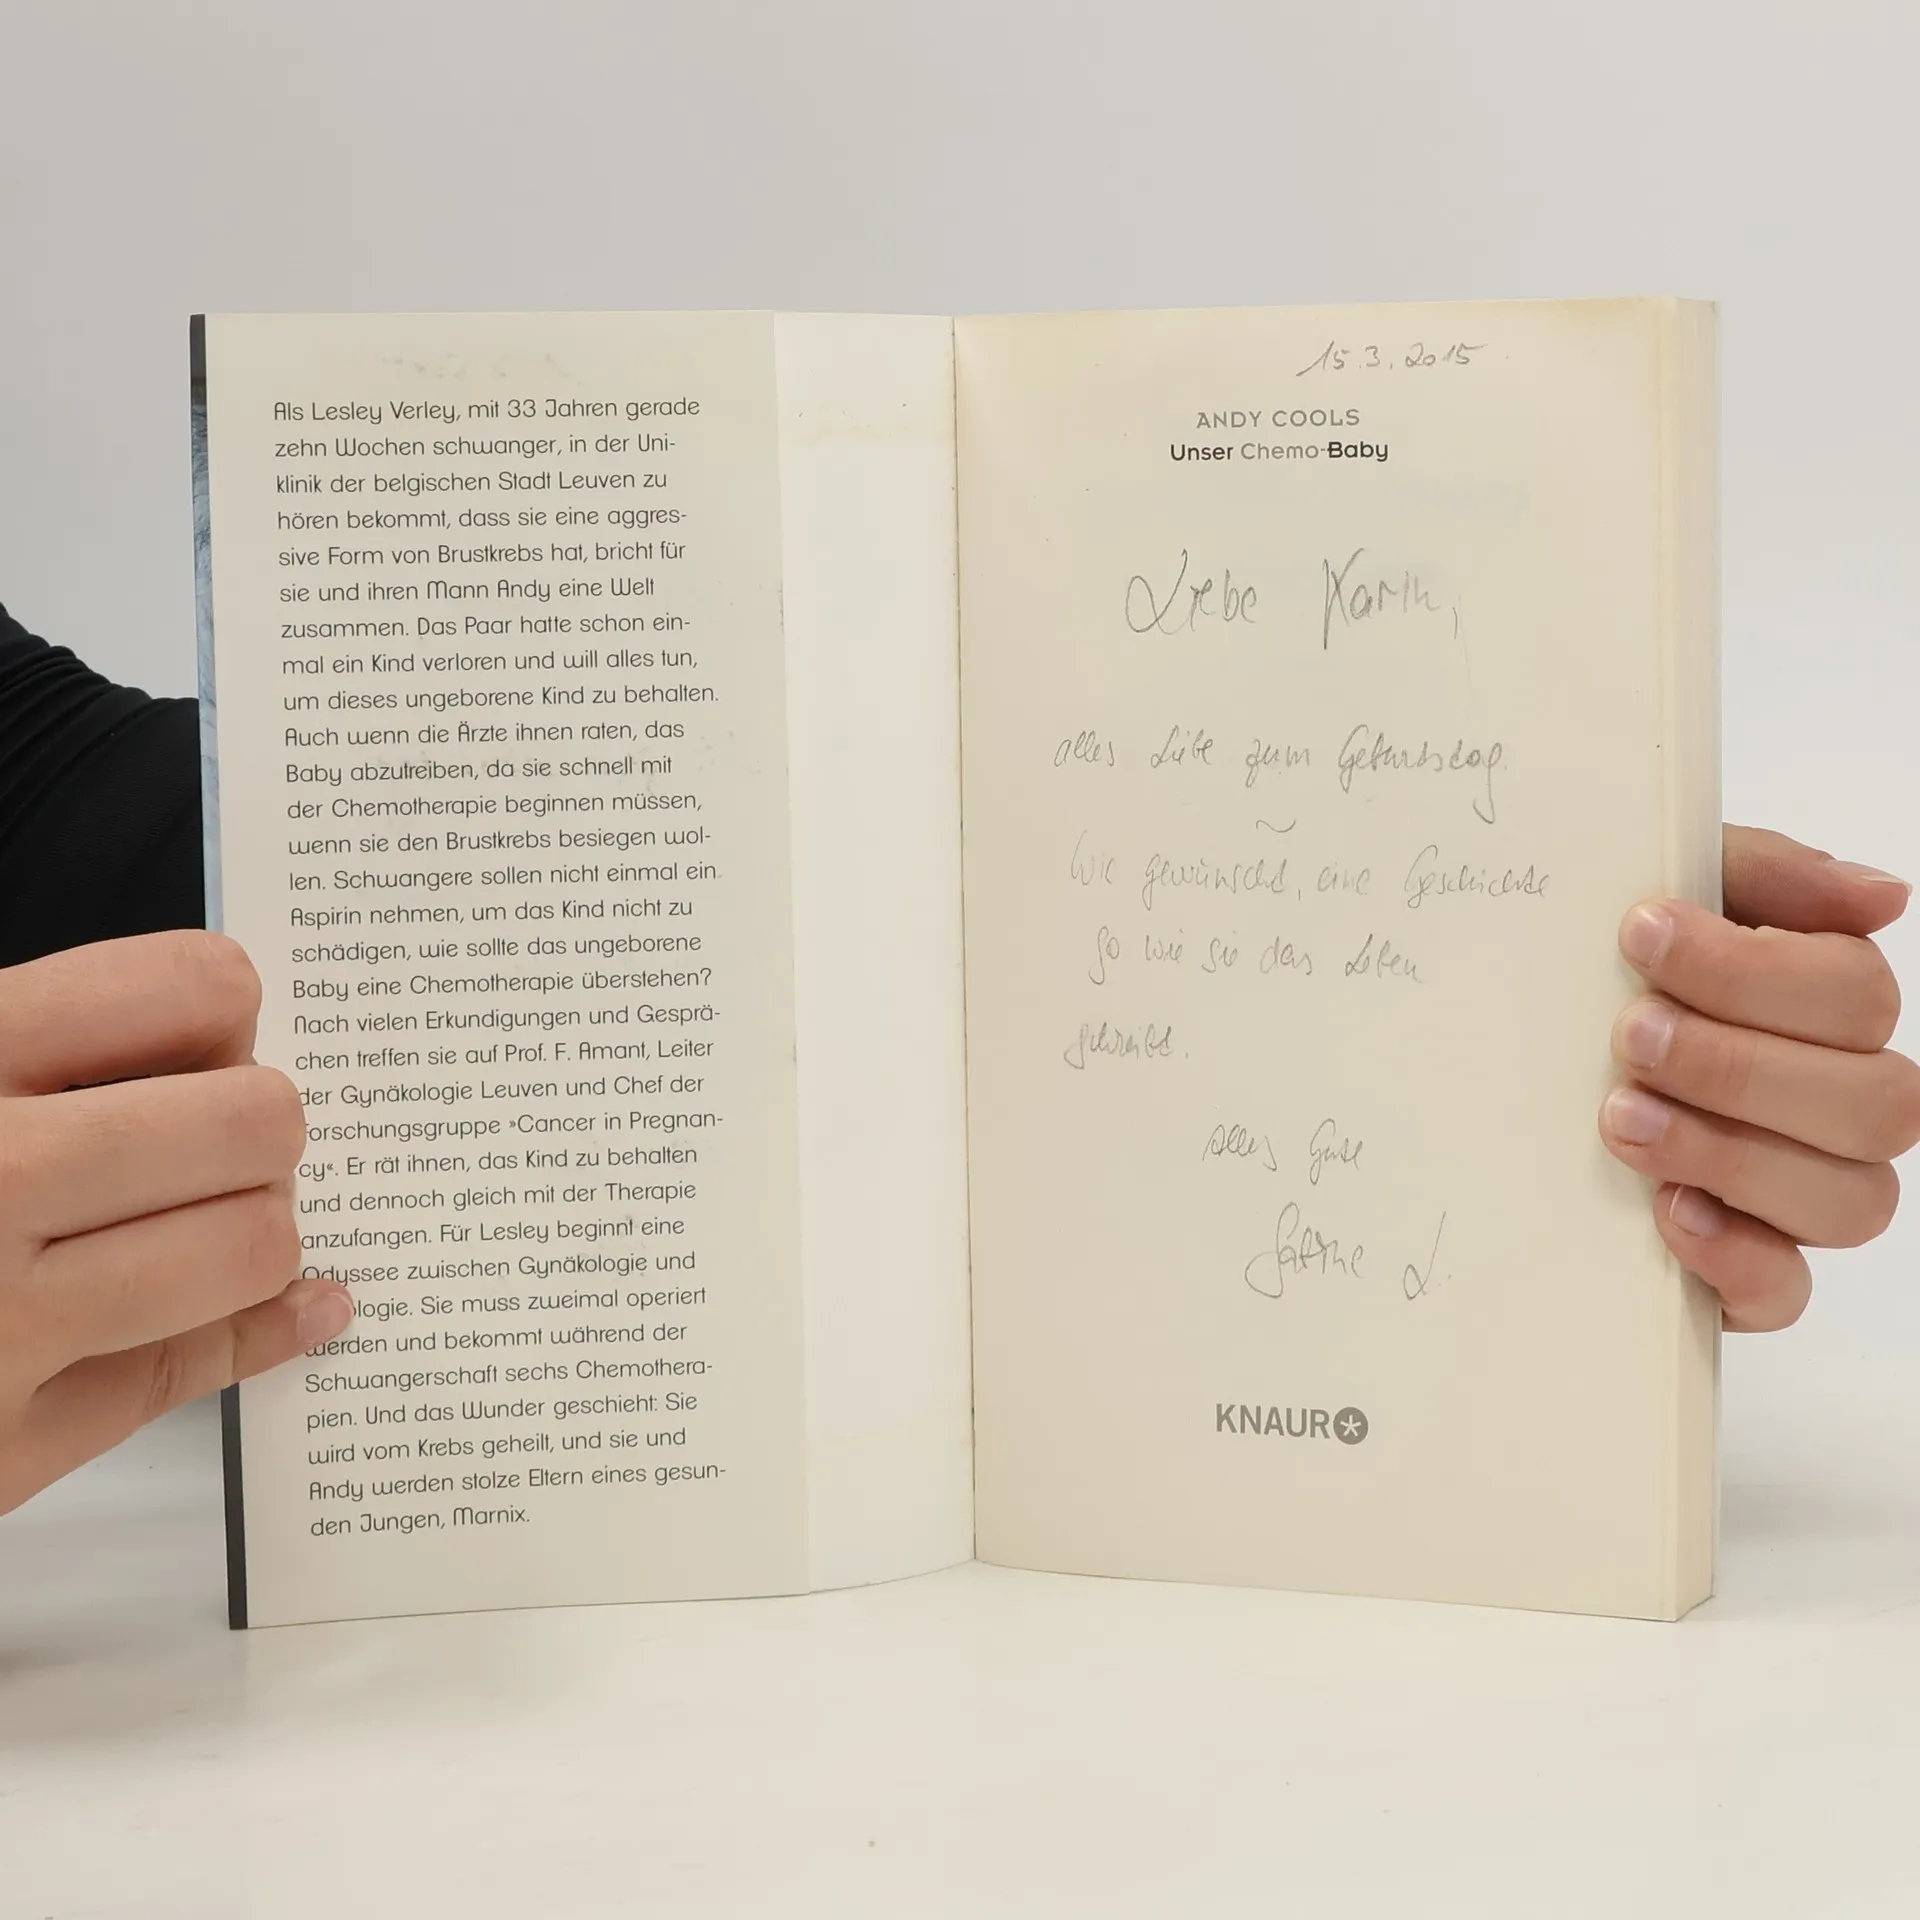 Als Lesley Verley, mit 33 Jahren gerade
zehn Wochen schwanger, in der Uni-
klinik der belgischen Stadt Leuven zu
hören bekommt, dass sie eine aggres-
sive Form von Brustkrebs hat, bricht für
sie und ihren Mann Andy eine Welt
zusammen. Das Paar hatte schon ein-
mal ein Kind verloren und will alles tun,
um dieses ungeborene Kind zu behalten.
Auch wenn die Ärzte ihnen raten, das
Baby abzutreiben, da sie schnell mit
der Chemotherapie beginnen müssen,
wenn sie den Brustkrebs besiegen wol-
len. Schwangere sollen nicht einmal ein
Aspirin nehmen, um das Kind nicht zu
schädigen, wie sollte das ungeborene
Baby eine Chemotherapie überstehen?
Nach vielen Erkundigungen und Gesprä-
chen treffen sie auf Prof. F. Amant, Leiter
der Gynäkologie Leuven und Chef der
Forschungsgruppe »Cancer in Pregnan-
cy«. Er rät ihnen, das Kind zu behalten
und dennoch gleich mit der Therapie
anzufangen. Für Lesley beginnt eine
Odyssee zwischen Gynäkologie und
logie. Sie muss zweimal operiert
werden und bekommt während der
Schwangerschaft sechs Chemothera-
pien. Und das Wunder geschieht: Sie
wird vom Krebs geheilt, und sie und
Andy werden stolze Eltern eines gesun-
den Jungen, Marnix.
15.3.2015
ANDY COOLS
Unser Chemo-Baby
Liebe Karin,
alles Liebe zum Geburtstag.
Wie gewünscht, eine Geschichte
so wie sie das Leben
schreibt.
Alles Gute
Sabine L.
KNAUR